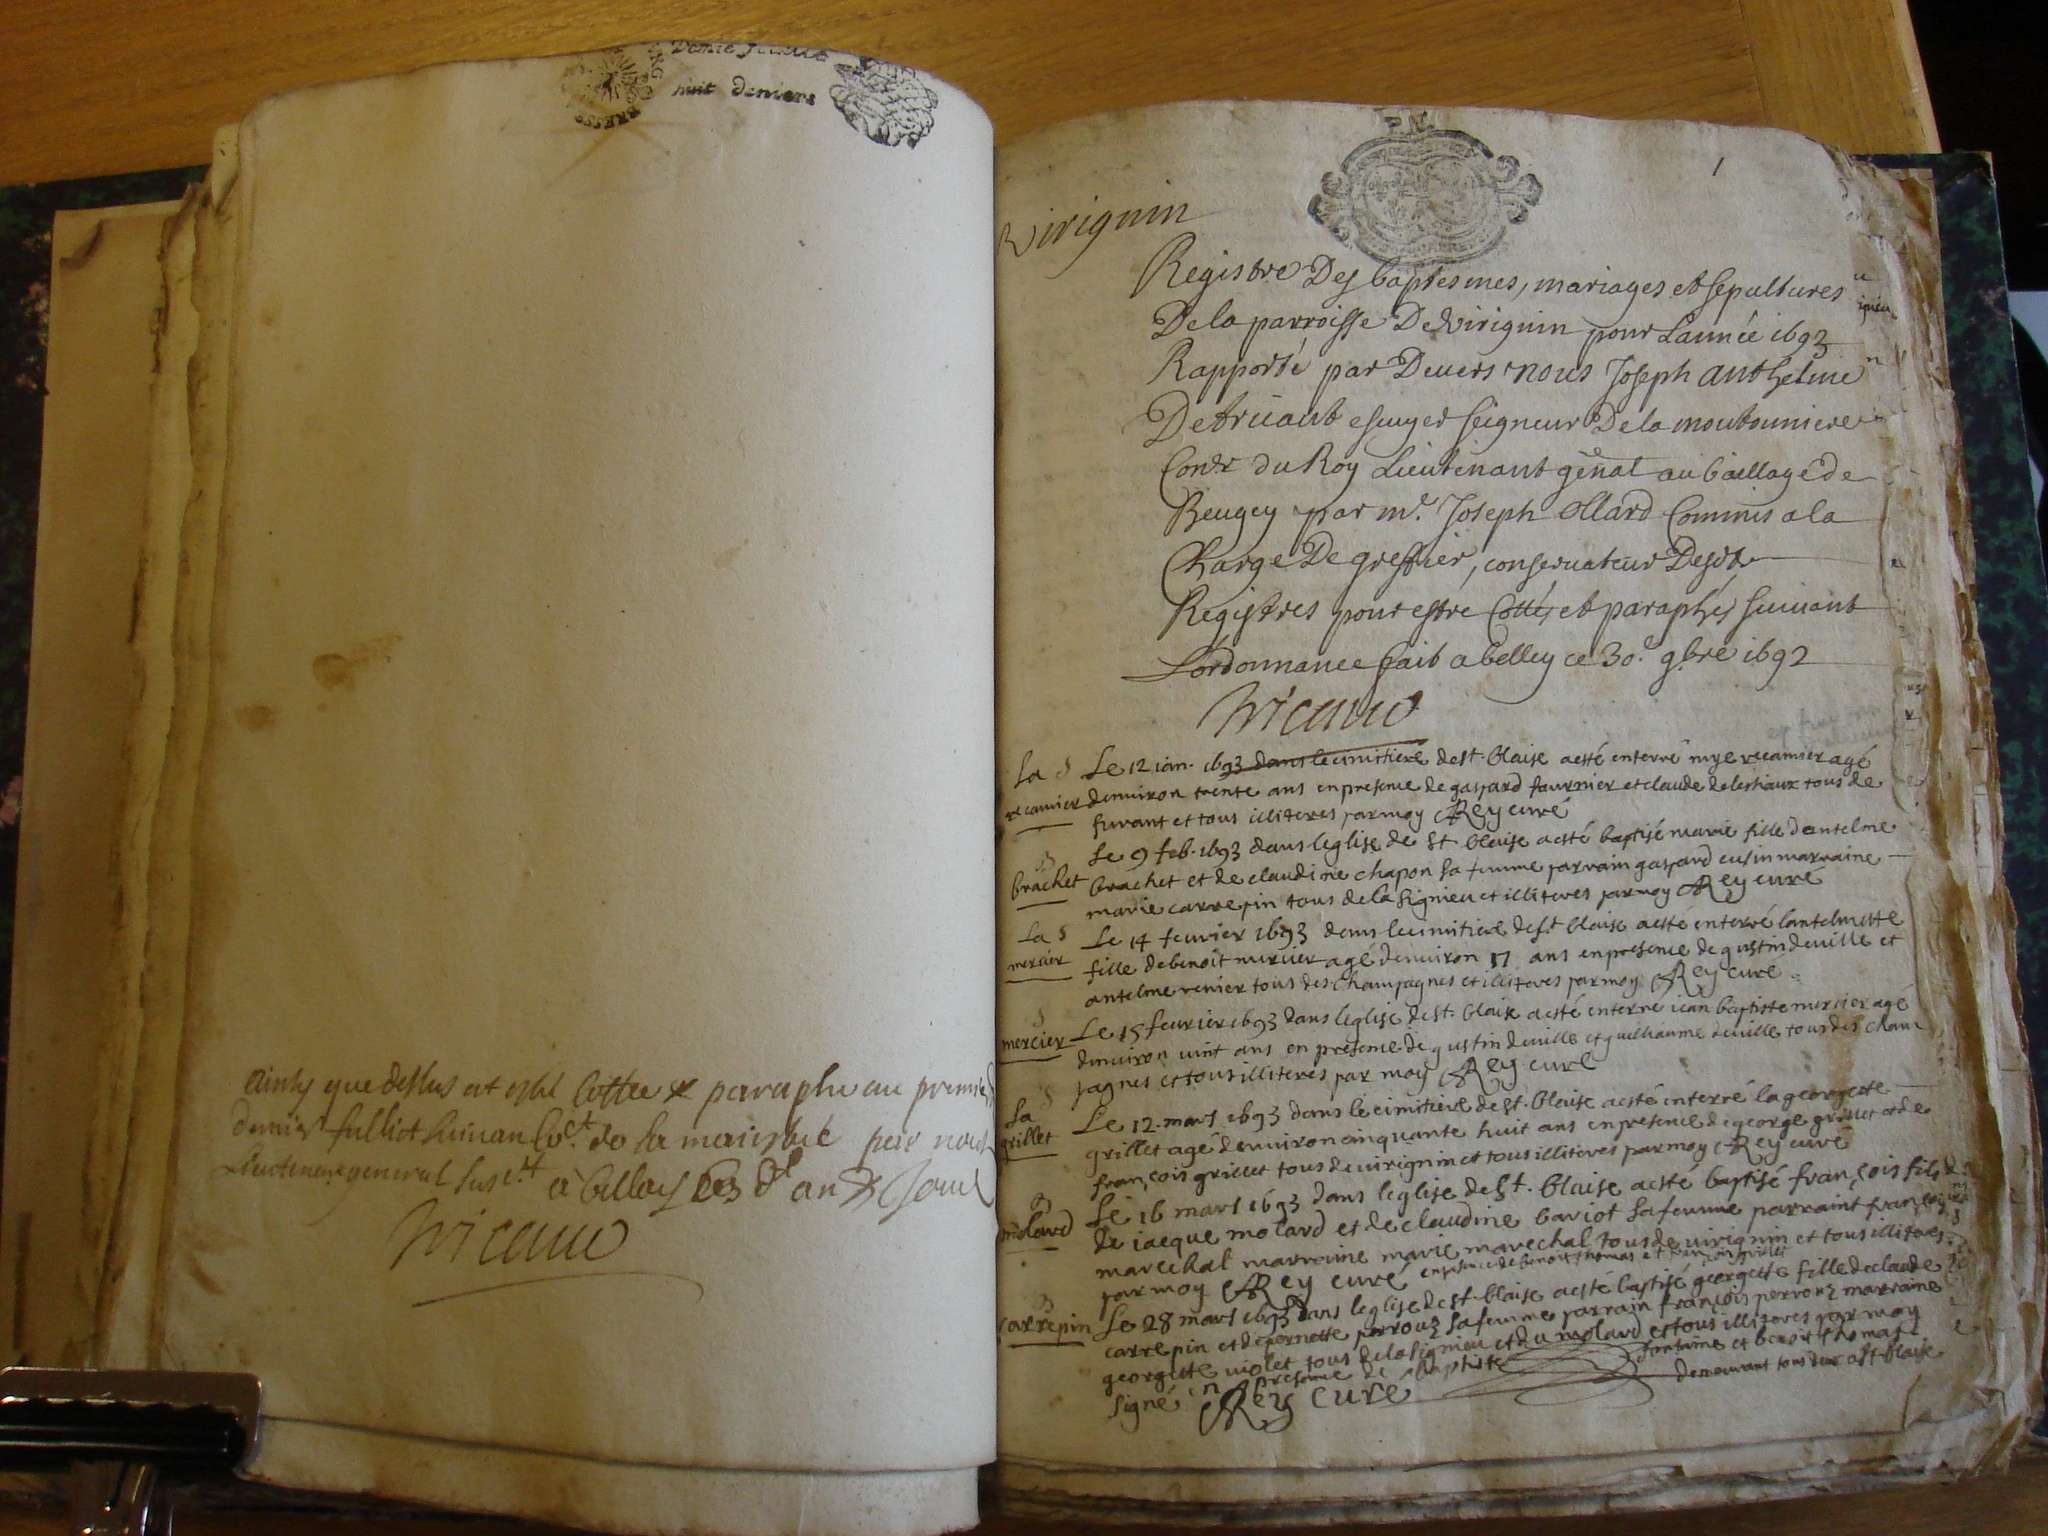 Demie feuille
huit deniers
BRESSE
ainsy que dessus et esté cottée & paraphé au premier
dernier feulliet suivant de sa majesté par nous
Lieutenant general susdt a Belley les dt an & jour
Tricaud
1
Virignin
Registre Des baptesmes, mariages et sepultures
De la parroisse De virignin pour Lannée 1693
Rapporté par Devers nous Joseph anthelme
De tricault escuyer seigneur De la moutonniere
Conser du Roy Lieutenant genal au baillage de
Beugey par mr. Joseph Ollard Commis a la
Charge De greffier, conservateur Desdts
Registres pour estre Cottés et paraphés suivant
Lordonnance fait a belley ce 30e. 9bre 1692
Tricaud
La S
recamier
Le 12 ian. 1693 dans le cimitiere de st. blaise a esté enterré mye recamier agé
denviron trente ans en presence de gaspard fournier et claude delestraux tous de
furant et tous illiteres par moy Rey curé
B
brachet
Le 9 feb. 1693 dans leglise de st blaise a esté baptisé marie fille dantelme
brachet et de claudine chapon sa femme parrain gaspard cusin marraine
marie carrepin tous de lasignieu et illiteres par moy Rey curé
La S
mercier
Le 14 fevrier 1693 dans le cimitiere de st blaise a esté enterré lantelmette
fille de benoit mercier agé denviron 17 ans en presence de gustin deville et
antelme renier tous des champagnes et illiteres par moy Rey curé
S
mercier
Le 15 fevrier 1693 dans leglise de st. blaise a esté enterré iean baptiste mercier agé
denviron vint ans en presence de gustin deville et guilhaume deville tous des cham
pagnes et tous illiteres par moy Rey curé
La S
grillet
Le 12. mars 1693 dans le cimitiere de st. blaise a esté enterré la georgette
grillet agé denviron cinquante huit ans en presence de george grillet et de
francois grillet tous de virignin et tous illiteres par moy Rey curé
B
molard
Le 16 mars 1693 dans leglise de st. blaise a esté baptisé françois fils
de iacque molard et de claudine bariot sa femme parraint françois
marechal marraine marie marechal tous de virignin et tous illiteres
par moy Rey curé en presence de benoit thomas et françois grillet
B
carrepin
Le 28 mars 1693 dans leglise de st. blaise a esté baptisé georgette fille de claude
carrepin et de pernette perrouz sa femme parrain françois perrouz marraine
georgette violet tous de lasignieu et du molard et tous illiteres par moy
signé en presence de baptiste fontaine et benoit thomas
demeurant tous deux a st. blaise
Rey curé